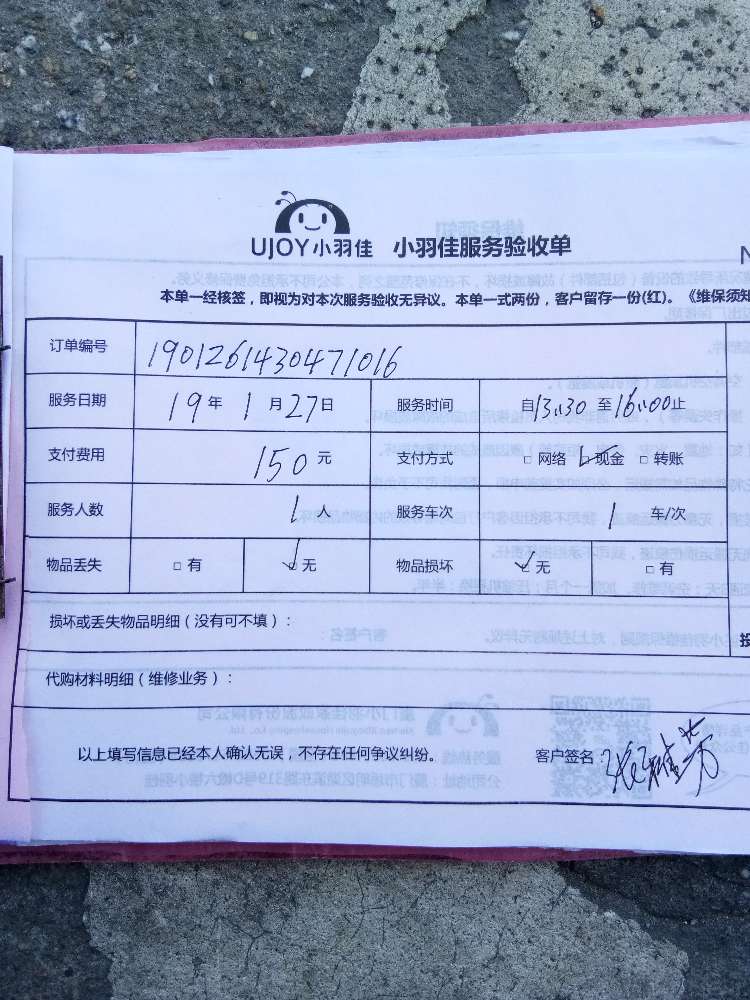 UJOY小羽佳 小羽佳服务验收单
本单一经核签，即视为对本次服务验收无异议。本单一式两份，客户留存一份(红)。《维保须知
订单编号 1901261430471016
服务日期 19年1月27日 服务时间 自13:30至16:00止
支付费用 150元 支付方式 □网络 ☑现金 □转账
服务人数 1人 服务车次 1车/次
物品丢失 □有 ☑无 物品损坏 ☑无 □有
损坏或丢失物品明细（没有可不填）：
代购材料明细（维修业务）：
以上填写信息已经本人确认无误，不存在任何争议纠纷。 客户签名：